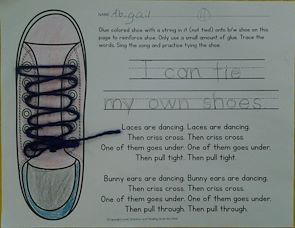 NAME Abigail
Glue colored shoe with a string in it (not tied) onto b/w shoe on this
page to reinforce shoe. Only use a small amount of glue. Trace the
words. Sing the song and practice tying the shoe.
I can tie
my own shoes.
Laces are dancing. Laces are dancing.
Then criss cross. Then criss cross
One of them goes under. One of them goes under.
Then pull tight. Then pull tight.
Bunny ears are dancing. Bunny ears are dancing.
Then criss cross. Then criss cross.
One of them goes under. One of them goes under.
Then pull through. Then pull through.